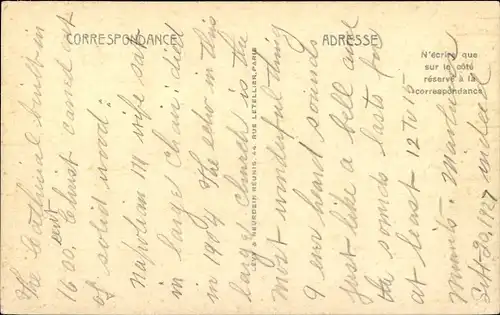 CORRESPONDANCE
ADRESSE
N'écrire que
sur le côté
réservé à la
correspondance
LEVY & NEURDEIN RÉUNIS, 44, RUE LETELLIER, PARIS
The Cathedral built in
1600. Christ carved out
of solid wood.
Napolian III wife sat
in large chair. died
in 1904 The echo in this
large church is the
most wonderful thing
I ever heard sounds
just like a bell and
the sounds lasts for
at least 12 to 15
minits.
Sept 20, 1927